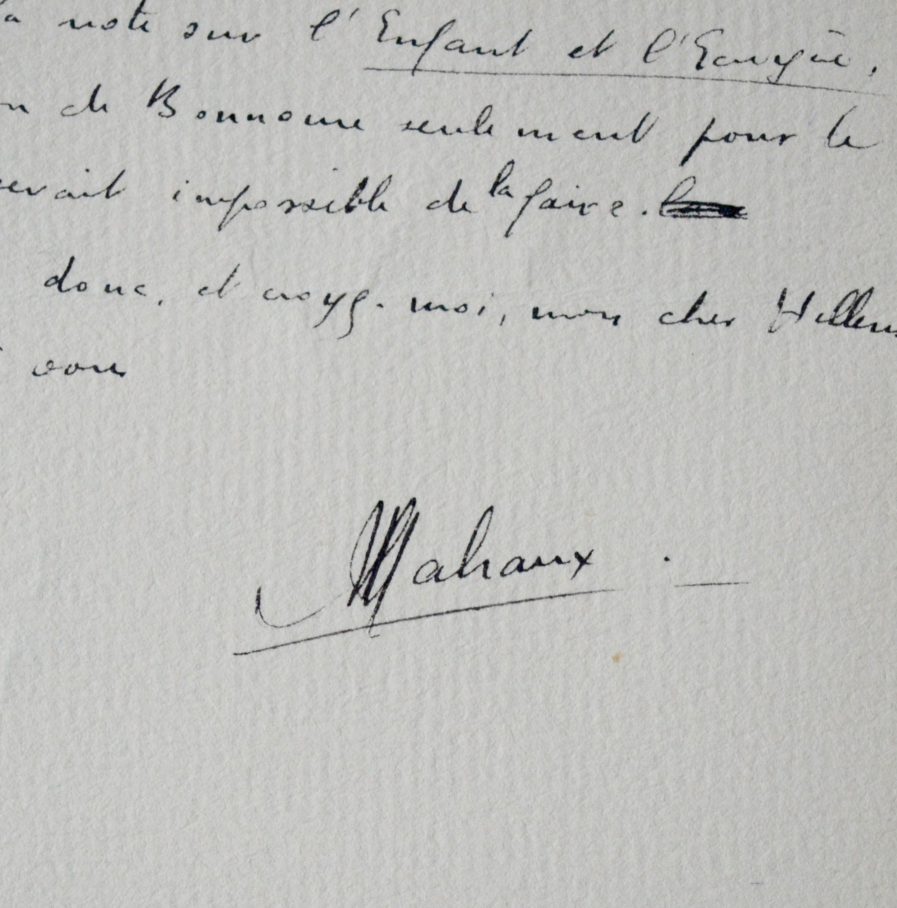 la note sur l'Enfant et l'Ecuyère,
on de Bonnome seulement pour le
serait impossible de la faire.
donc, et croyez-moi, mon cher Hellens
à vous
Malraux.